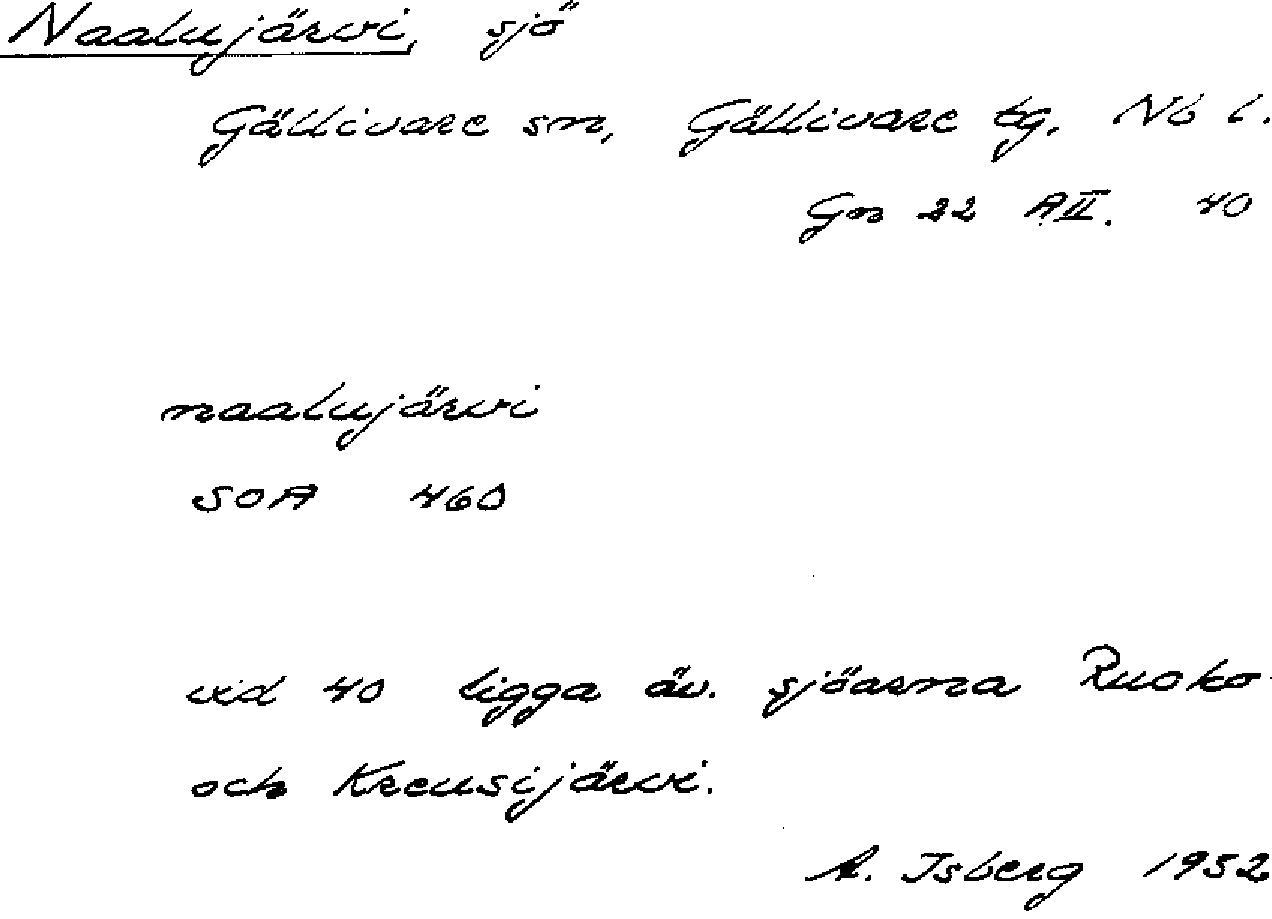 Naalujärvi, sjö
Gällivare sn, Gällivare tg. Nb l.
Gn 22 A II. 40
naalujärvi
SOA 460
vid 40 ligga äv. sjöarna Ruoko-
och Kreusijärvi.
A. Isberg 1952